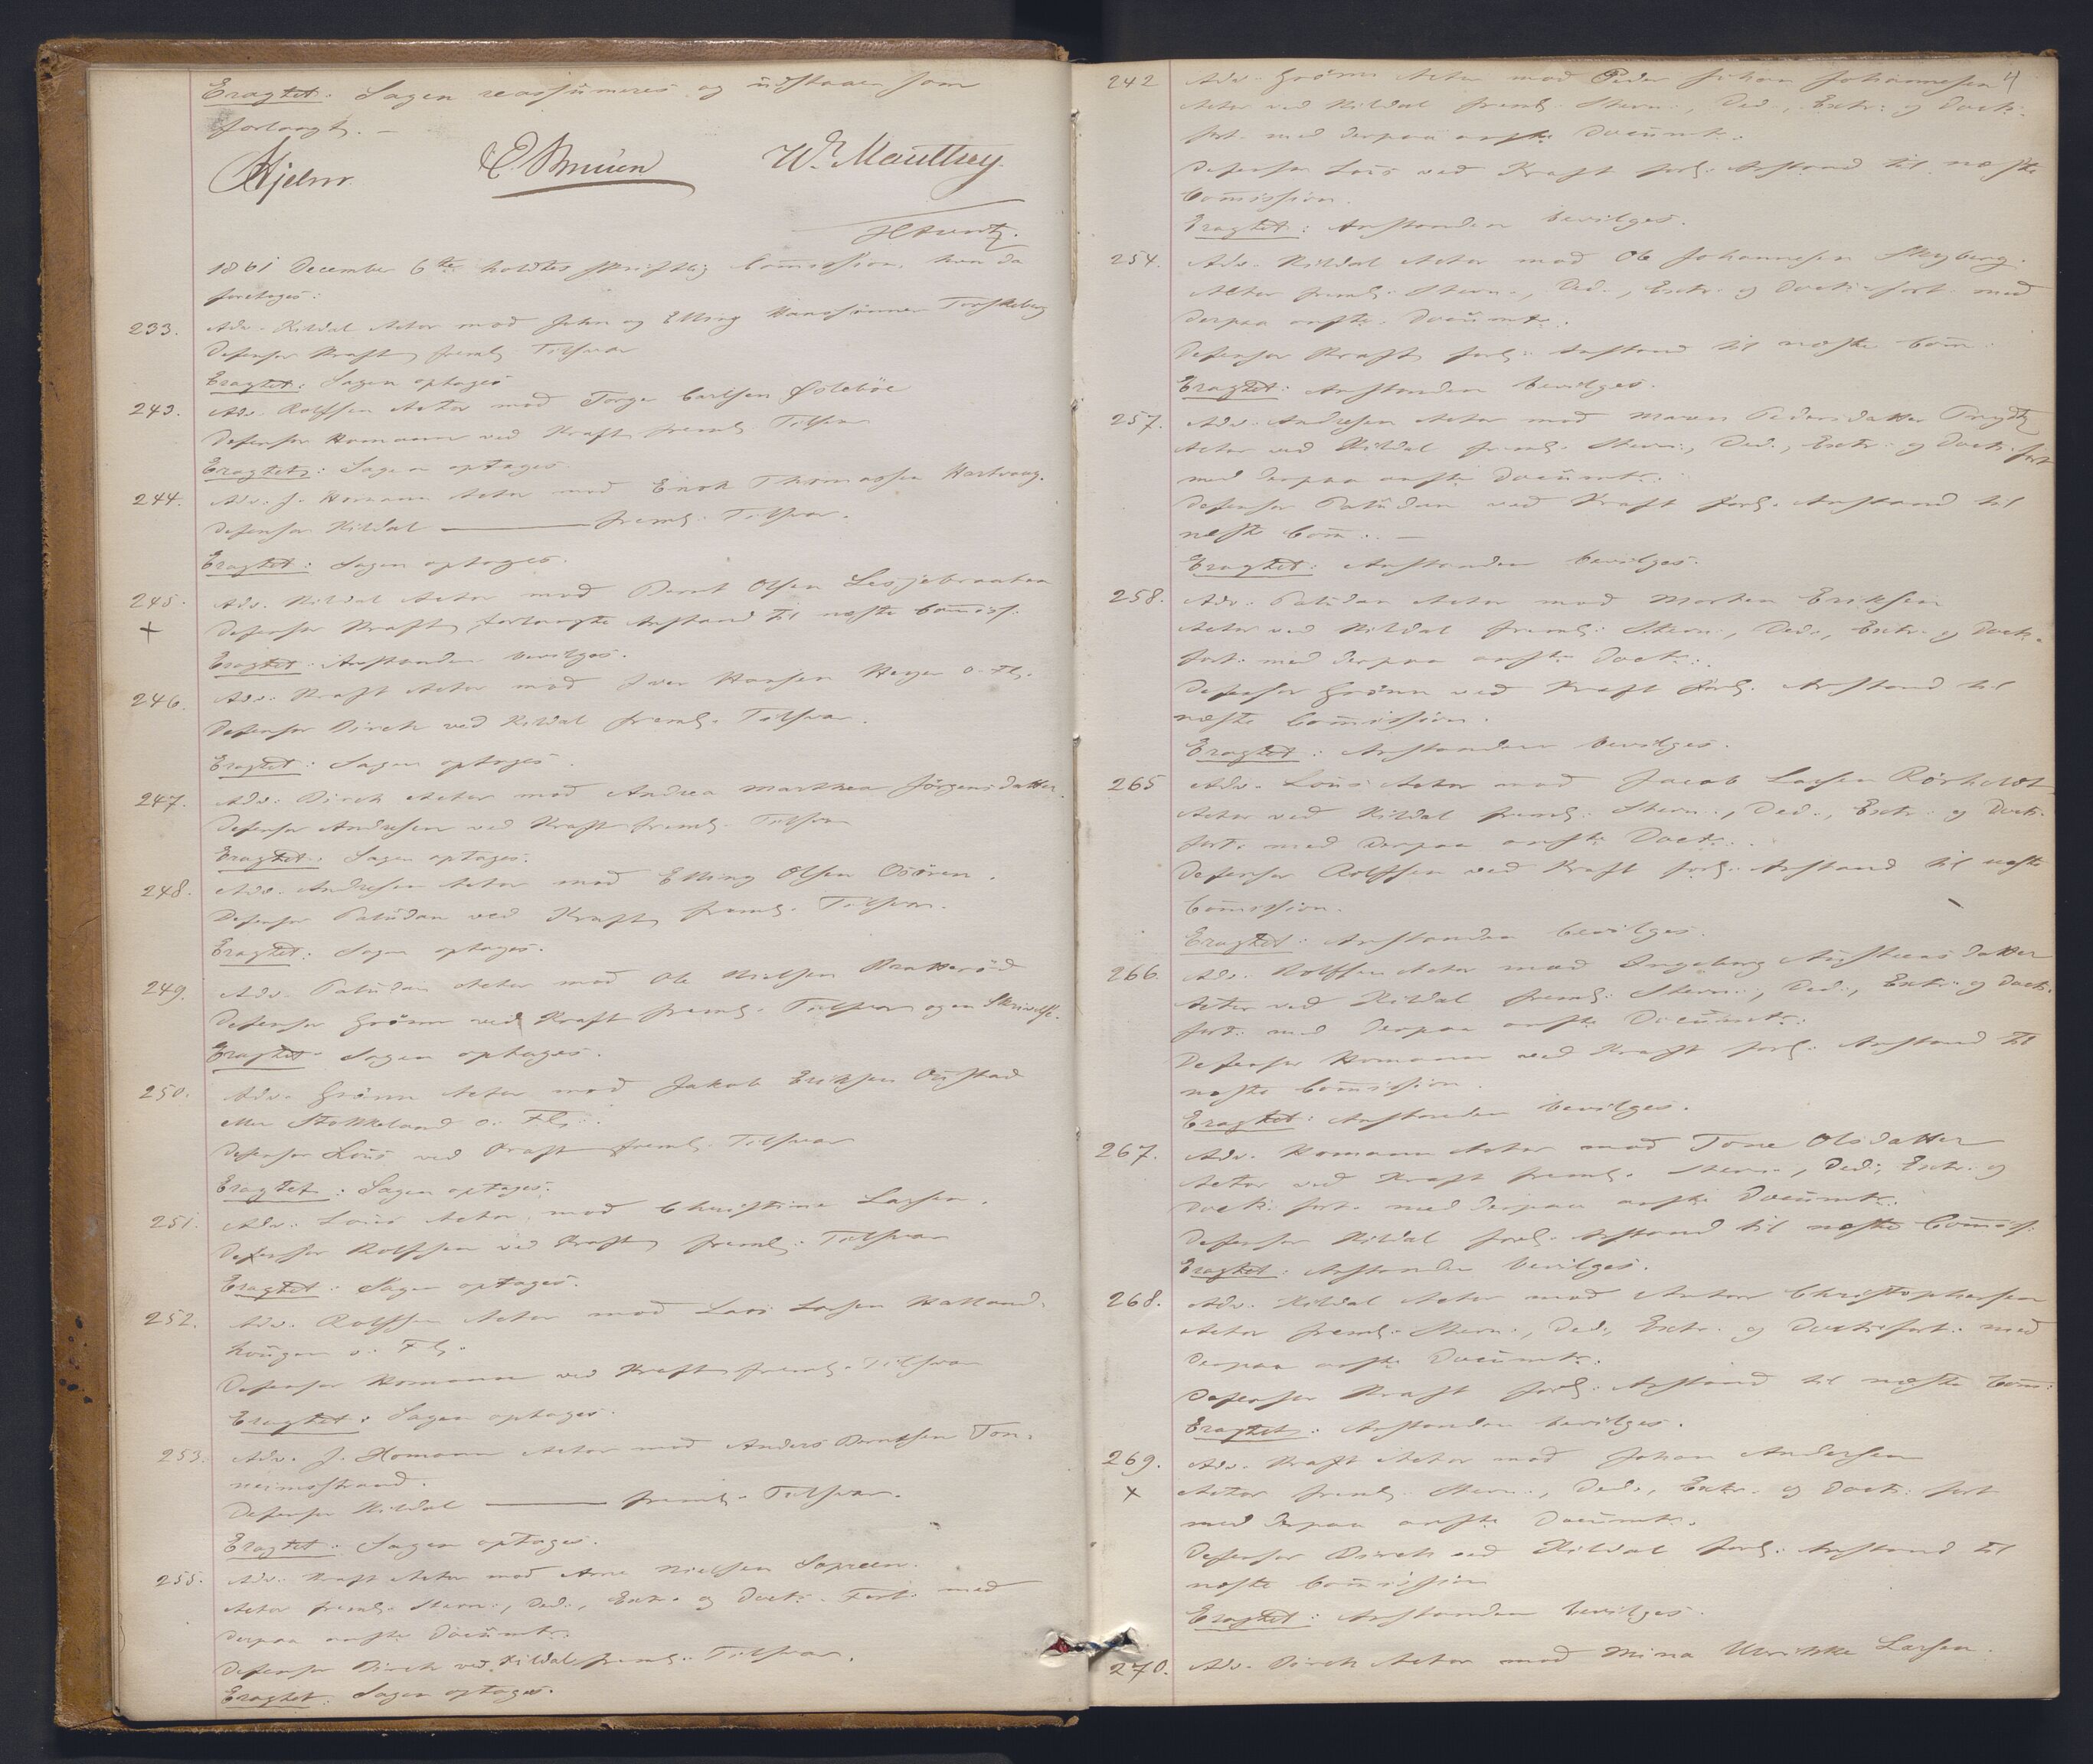 Eragtet: Sagen reassumeres og udstaaer som
forlangt. —
Hjelm. E. Bruun W. Mouttrey.
HArentz.
1861 December 6te holdtes skriftlig Commission, hvor da
foretoges:
233. Adv. Kildal Actor mod John og Elling Hanssønner Torskeberg
Defensor Kraft freml. Tilsvar
Eragtet: Sagen optages
243. Adv. Rolfsen Actor mod Torger Carlsen Østebøe
Defensor Homann ved Kraft freml. Tilsvar
Eragtet: Sagen optages.
244. Adv. J. Homann Actor mod Enok Thomassen Hartvaag.
Defensor Kildal ——— freml. Tilsvar.
Eragtet: Sagen optages.
245. Adv. Kildal Actor mod Bernt Olsen Lesjebraaten
+ Defensor Kraft forlangte Anstand til næste Commiss.
Eragtet: Anstanden bevilges.
246. Adv. Kraft Actor mod Iver Hansen Hagen o. Fl.
Defensor Dirch ved Kildal freml. Tilsvar.
Eragtet: Sagen optages.
247. Adv. Dirch Actor mod Andrea Marthea Jörgensdatter.
Defensor Andresen ved Kraft freml. Tilsvar
Eragtet: Sagen optages.
248. Adv. Andresen Actor mod Elling Olsen Osören.
Defensor Paludan ved Kraft freml. Tilsvar.
Eragtet: Sagen optages.
249. Adv. Paludan Actor mod Ole Nielsen Bratteröd
Defensor Grönn ved Kraft freml. Tilsvar og en Skrivelse.
Eragtet: Sagen optages.
250. Adv. Grönn Actor mod Jakob Eriksen Austad
eller Stokkeland o. Fl.
Defensor Lous ved Kraft freml. Tilsvar
Eragtet: Sagen optages.
251. Adv. Lous Actor mod Christine Larsen.
Defensor Rolfsen ved Kraft freml. Tilsvar
Eragtet: Sagen optages.
252. Adv. Rolfsen Actor mod Lars Larsen Hatland-
hougen o. Fl.
Defensor Homann ved Kraft freml. Tilsvar
Eragtet: Sagen optages.
253. Adv. J. Homann Actor mod Anders Berntsen Ton-
neimsstrand.
Defensor Kildal ——— freml. Tilsvar.
Eragtet: Sagen optages.
255. Adv. Kraft Actor mod Arne Nielsen
Actor freml. Stevn., Ded., Extr. og Doct. Fort. med
derpaa anfte Documtr.
Defensor Dirch ved Kildal freml. Tilsvar.
Eragtet: Sagen optages.
4
242 Adv. Grönn Actor mod Peder Johan Johannesen
Actor ved Kildal freml. Stevn., Ded., Extr. og Doct.
fort. med derpaa anfte Documtr.
Defensor Lous ved Kraft forl. Anstand til næste
Commission.
Eragtet: Anstanden bevilges.
254. Adv. Kildal Actor mod Ole Johannesen Skyberg.
Actor freml. Stevn., Ded., Extr. og Doct. fort. med
derpaa anfte Documtr.
Defensor Kraft forl. Anstand til næste Comm.
Eragtet: Anstanden bevilges.
257. Adv. Andresen Actor mod Maren Pedersdatter Prydtz
Actor ved Kildal freml. Stevn., Ded., Extr. og Doct. fort
med derpaa anfte Documtr.
Defensor Paludan ved Kraft forl. Anstand til
næste Comm. —
Eragtet: Anstanden bevilges.
258. Adv. Paludan Actor mod Morten Eriksen
Actor ved Kildal freml. Stevn., Ded., Extr. og Doct.
fort. med derpaa anfte Doctr.
Defensor Grönn ved Kraft forl. Anstand til
næste Commission.
Eragtet: Anstanden bevilges.
265 Adv. Lous Actor mod Jacob Larsen Rörholdt
Actor ved Kildal freml. Stevn., Ded., Extr. og Doct.
fort. med derpaa anfte Doctr.
Defensor Rolfsen ved Kraft forl. Anstand til næste
Commission.
Eragtet: Anstanden bevilges.
266. Adv. Rolfsen Actor mod Ingeborg Austensdatter
Actor ved Kildal freml. Stevn., Ded., Extr. og Doct.
fort. med derpaa anfte Documtr.
Defensor Homann ved Kraft forl. Anstand til
næste Commission.
Eragtet: Anstanden bevilges.
267. Adv. Homann Actor mod Tone Olsdatter
Actor ved Kraft freml. Stevn., Ded., Extr. og
Doct. fort. med derpaa anfte Documtr.
Defensor Kildal forl. Anstand til næste Commis.
Eragtet: Anstanden bevilges.
268. Adv. Kildal Actor mod Anton Christophersen
Actor freml. Stevn., Ded., Extr. og Doct. fort. med
derpaa anfte Documtr.
Defensor Kraft forl. Anstand til næste Comm.
Eragtet: Anstanden bevilges.
269. Adv. Kraft Actor mod Johan Andersen
x Actor freml. Stevn., Ded., Extr. og Doct. fort
med derpaa anfte Documtr.
Defensor Dirch ved Kildal forl. Anstand til
næste Commission
Eragtet: Anstanden bevilges.
270. Adv. Dirch Actor mod Mina Ulrikke Larsen.